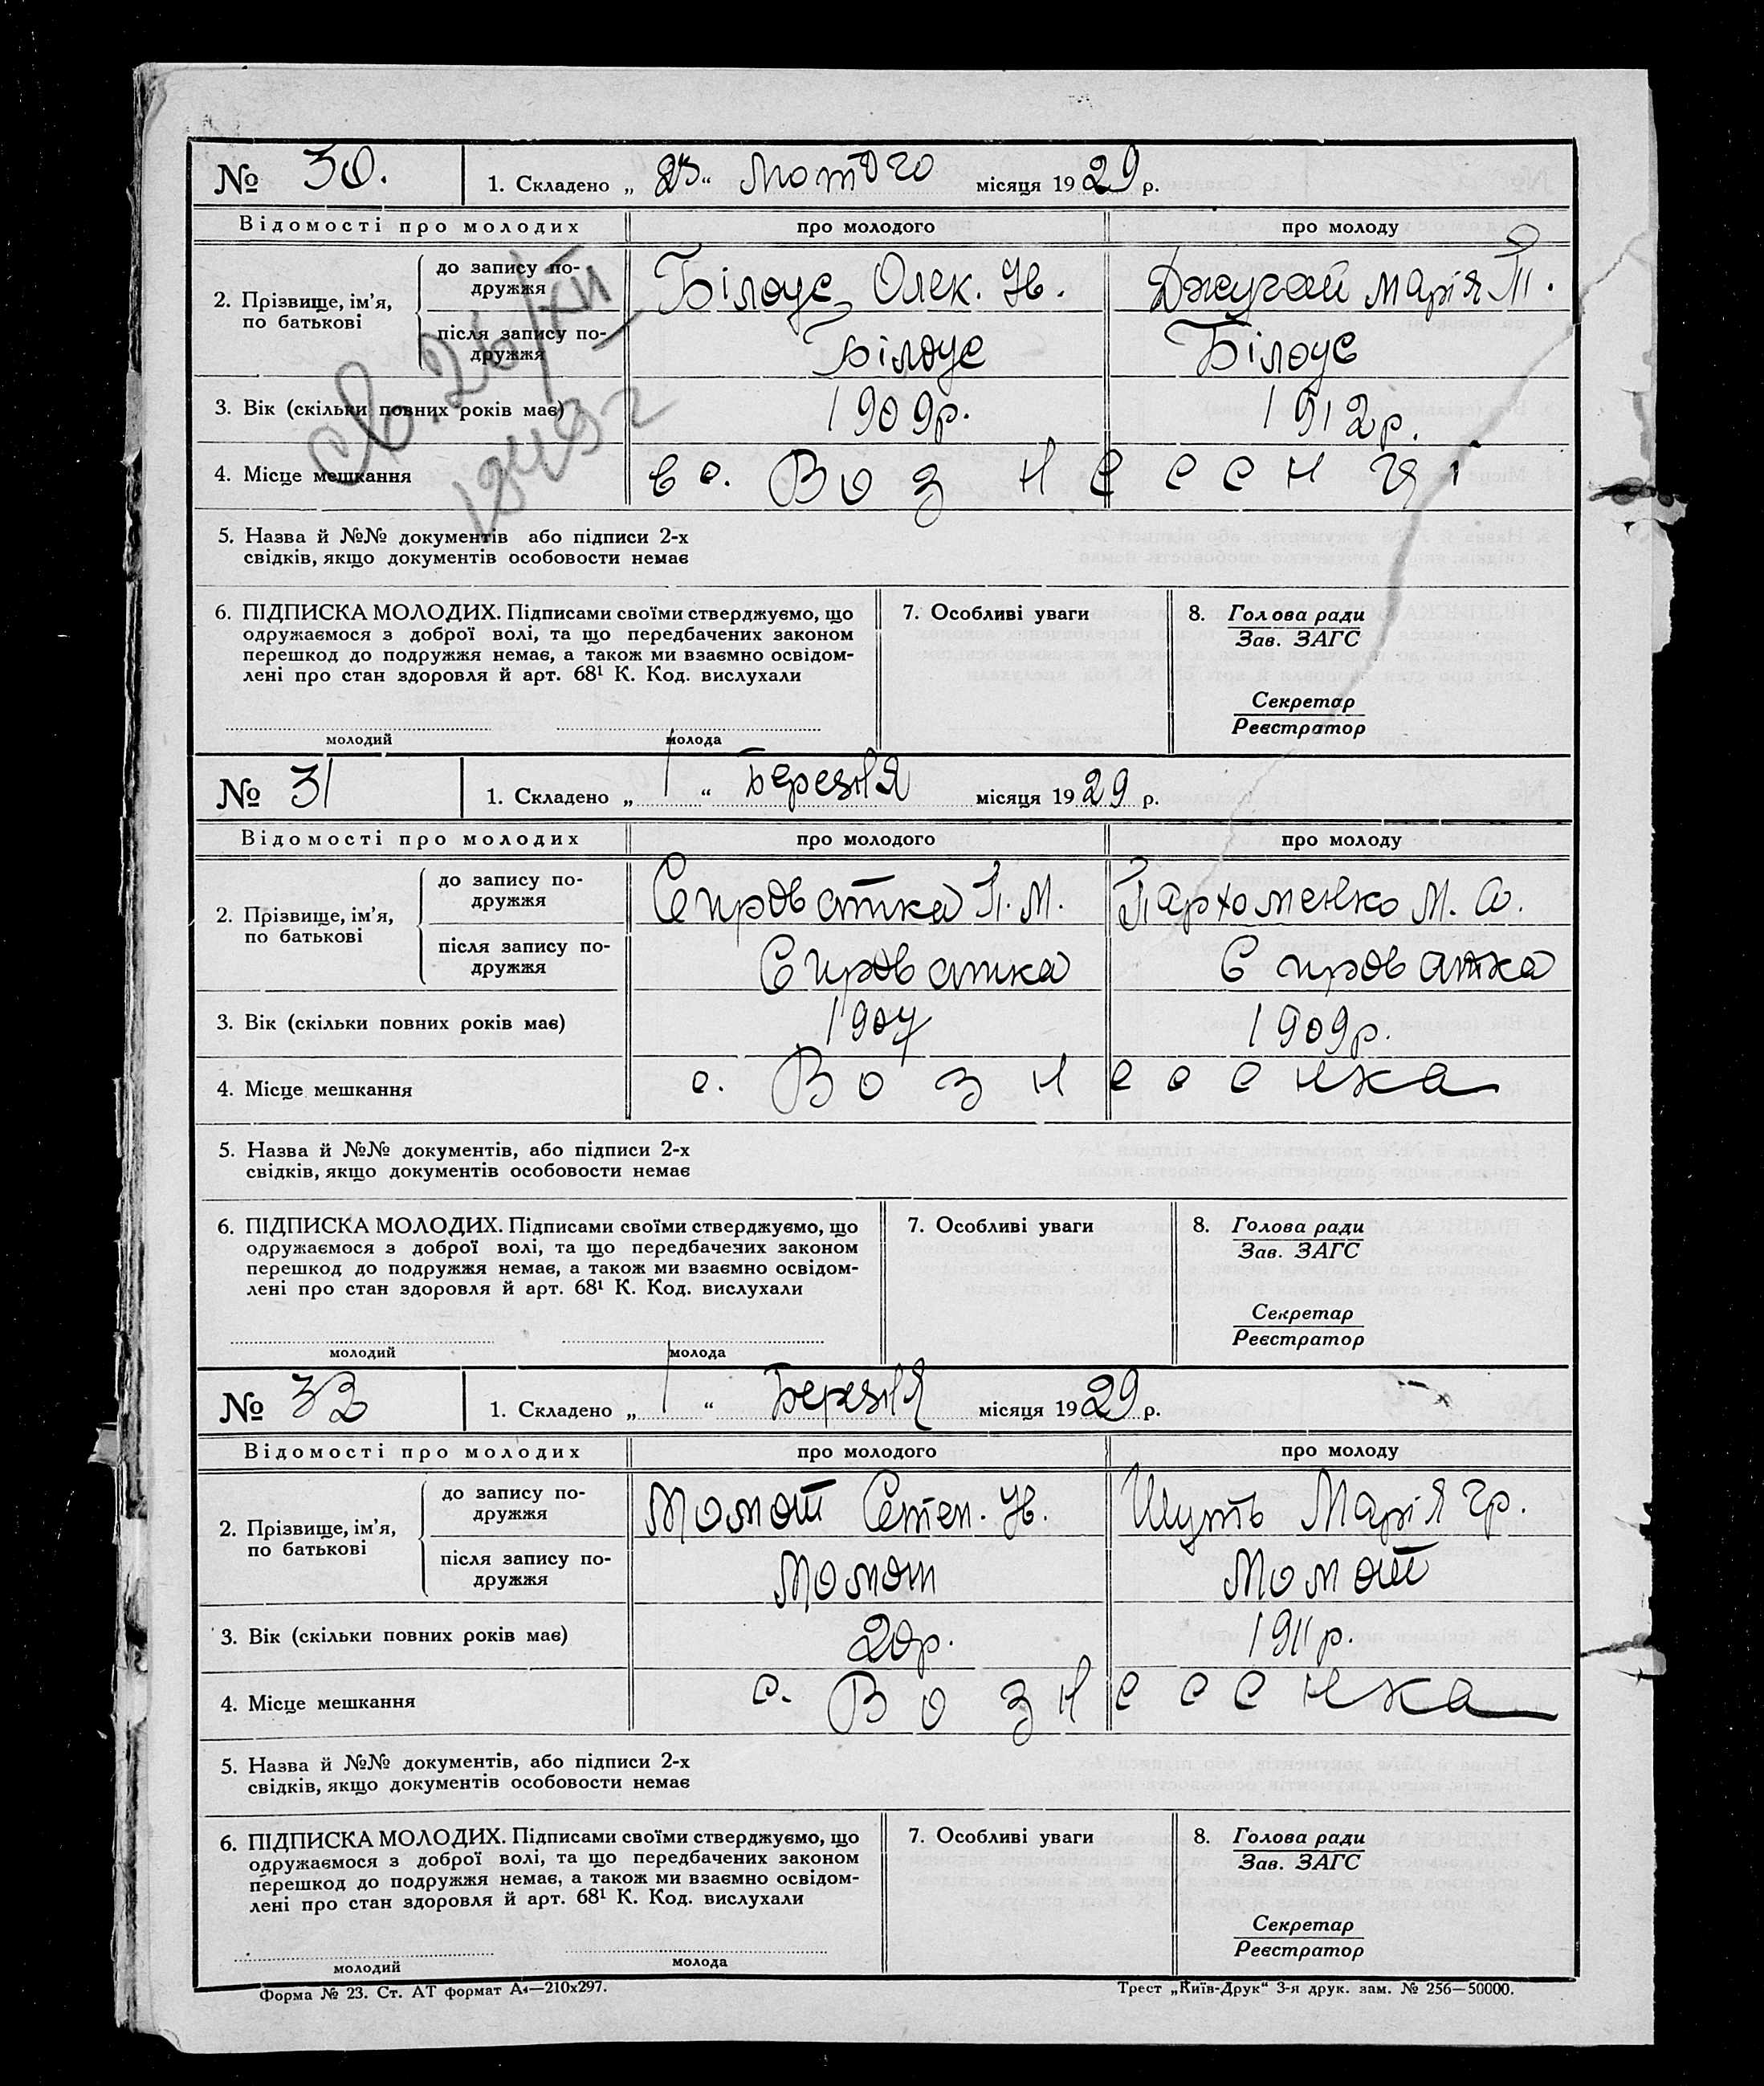 № 30. 1. Складено „ 23 “ Лютого місяця 1929 р.
Відомості про молодих про молодого про молоду
2. Прізвище, ім’я, по батькові
до запису подружжя Білоус Олек. Ів. Джугай Марія П.
після запису подружжя Білоус Білоус
3. Вік (скільки повних років має) 1909р. 1912р.
4. Місце мешкання в с. Вознесен
св. 26/XII
1943 г
5. Назва й №№ документів або підписи 2-х
свідків, якщо документів особовости немає
6. ПІДПИСКА МОЛОДИХ. Підписами своїми стверджуємо, що
одружаємося з доброї волі, та що передбачених законом
перешкод до подружжя немає, а також ми взаємно освідом-
лені про стан здоровля й арт. 68¹ К. Код. вислухали
молодий молода
7. Особливі уваги
8. Голова ради
Зав. ЗАГС
Секретар
Реєстратор
№ 31 1. Складено „ 1 “ Березня місяця 1929 р.
Відомості про молодих про молодого про молоду
2. Прізвище, ім’я, по батькові
до запису подружжя Сироватка П. М. Пархоменко М. О.
після запису подружжя Сироватка Сироватка
3. Вік (скільки повних років має) 1907 1909р.
4. Місце мешкання с. Вознесенка
5. Назва й №№ документів, або підписи 2-х
свідків, якщо документів особовости немає
6. ПІДПИСКА МОЛОДИХ. Підписами своїми стверджуємо, що
одружаємося з доброї волі, та що передбачених законом
перешкод до подружжя немає, а також ми взаємно освідом-
лені про стан здоровля й арт. 68¹ К. Код. вислухали
молодий молода
7. Особливі уваги
8. Голова ради
Зав. ЗАГС
Секретар
Реєстратор
№ 32 1. Складено „ 1 “ Березня місяця 1929 р.
Відомості про молодих про молодого про молоду
2. Прізвище, ім’я, по батькові
до запису подружжя Момот Степ. Ів. Шуть Марія Гр.
після запису подружжя Момот Момот
3. Вік (скільки повних років має) 20р. 1911р.
4. Місце мешкання с. Вознесенка
5. Назва й №№ документів, або підписи 2-х
свідків, якщо документів особовости немає
6. ПІДПИСКА МОЛОДИХ. Підписами своїми стверджуємо, що
одружаємося з доброї волі, та що передбачених законом
перешкод до подружжя немає, а також ми взаємно освідом-
лені про стан здоровля й арт. 68¹ К. Код. вислухали
молодий молода
7. Особливі уваги
8. Голова ради
Зав. ЗАГС
Секретар
Реєстратор
Форма № 23. Ст. АТ формат А₄—210х297. Трест „Київ-Друк“ 3-я друк. зам. № 256—50000.